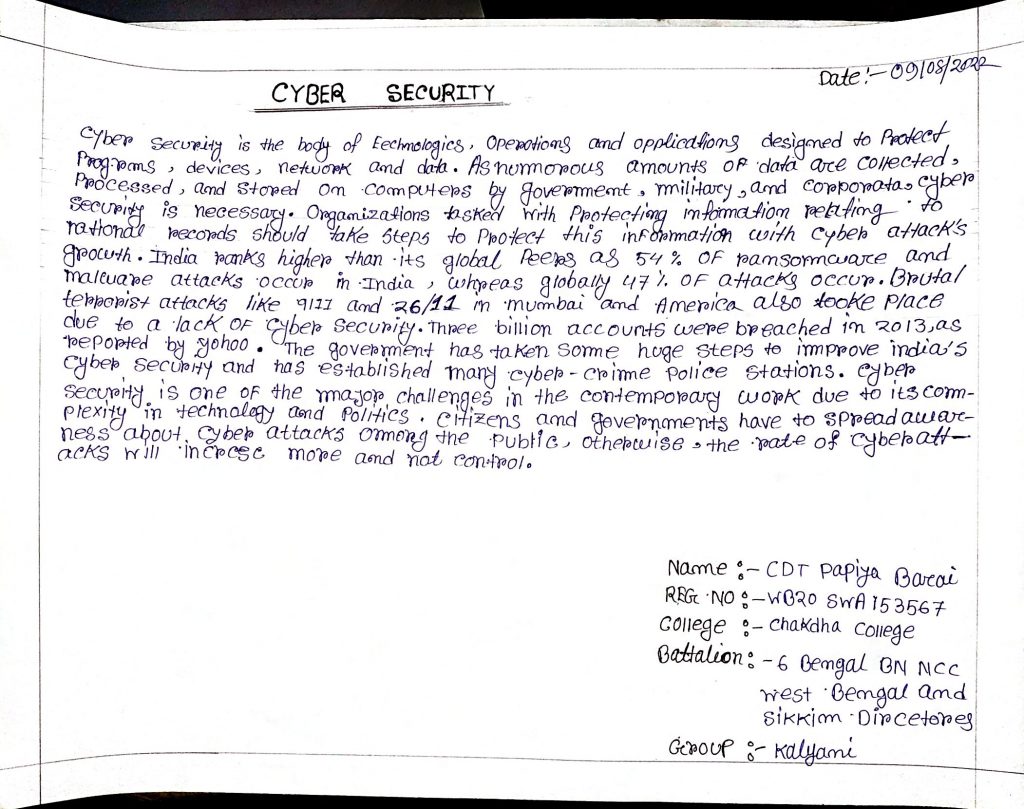 Date:- 09/08/2022
CYBER SECURITY
Cyber security is the body of Eechnologics, Operations and applications designed to Protect
Programs, devices, network and data. As numorous amounts of data are collected,
Processed, and stored on computers by government, military, and corporata, cyber
security is necessary. Organizations tasked with Protecting information relating to
national records should take steps to Protect this information with cyber attack's
growth. India ranks higher than its global Peers as 54% of ransomware and
malware attacks occur in India, whreas globally 47% of attacks occur. Brutal
terrorist attacks like 9111 and 26/11 in mumbai and America also tooke place
due to a lack of cyber security. Three billion accounts were breached in 2013, as
reported by yohoo. The goverment has taken some huge steps to improve india's
cyber security and has established many cyber-crime police stations. cyber
security is one of the major challenges in the contemporary work due to its com-
plexity in technology and politics. citizens and governments have to spread awar-
ness about cyber attacks among the public, otherwise, the rate of cyber att-
acks will increse more and not control.
Name :- CDT Papiya Barai
REG NO :- WB20 SWA153567
College :- chakdha college
Battalion :- 6 Bengal BN NCC
west Bengal and
Sikkim Dircetores
Group :- Kalyani